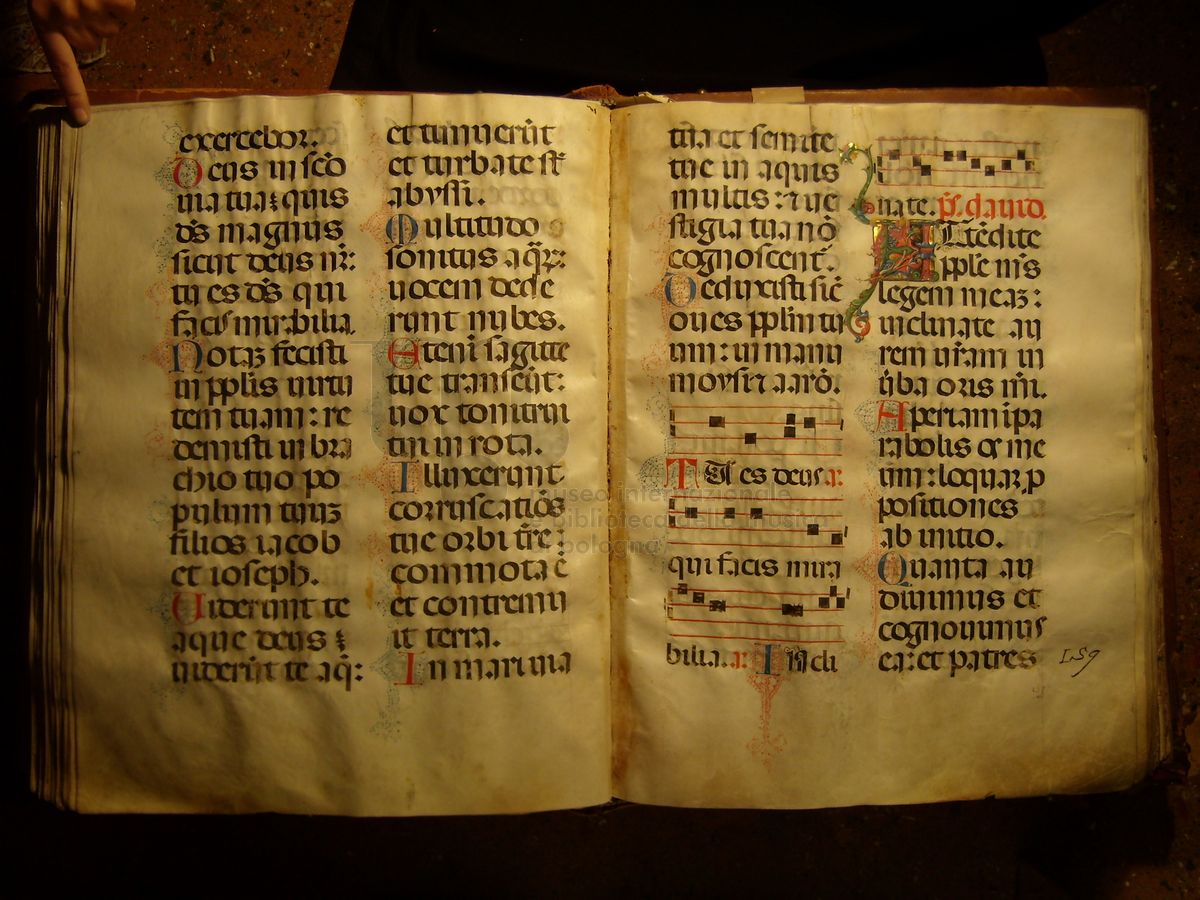 exercebor.
Deus in sc̄o
uia tua: quis
d̄s magnus
sicut deus nr̄:
tu es d̄s qui
facis mirabilia.
Notā fecisti
in pplis uirtu
tem tuam: re
demisti in bra
chio tuo po
pulum tuuꝫ
filios iacob
et ioseph.
Uiderunt te
aque deus ⁊
uiderūt te aq̄:
et timuerūt
et turbate sт̄
abyssi.
Multitudo
sonitus aq̄ꝝ:
uocem dede
runt nubes.
Etenī sagitte
tue transeūt:
uox tonitrui
tui in rota.
Illuxerunt
corruscatiōs
tue orbi tr̄e:
commota ē
et contremu
it terra.
In mari uia
tua et semite
tue in aquis
multis: ⁊ ue
stigia tua nō
cognoscent̄.
Deduxisti sic̄
oues pplm tu
um: in manu
moysi ⁊ aarō.
Tu es deus a:
qui facis mira
bilia. a: Incli
nate. ps. dauid.
Attēdite
pple m̄s
legem meaꝫ:
inclinate au
rem ur̄am in
ūba oris mī.
Aperiam ī pa
rabolis os me
um: loquar p
positiones
ab initio.
Quanta au
diuimus et
cognouimus
ea: et patres
159
museo internazionale
e biblioteca della musica
di bologna